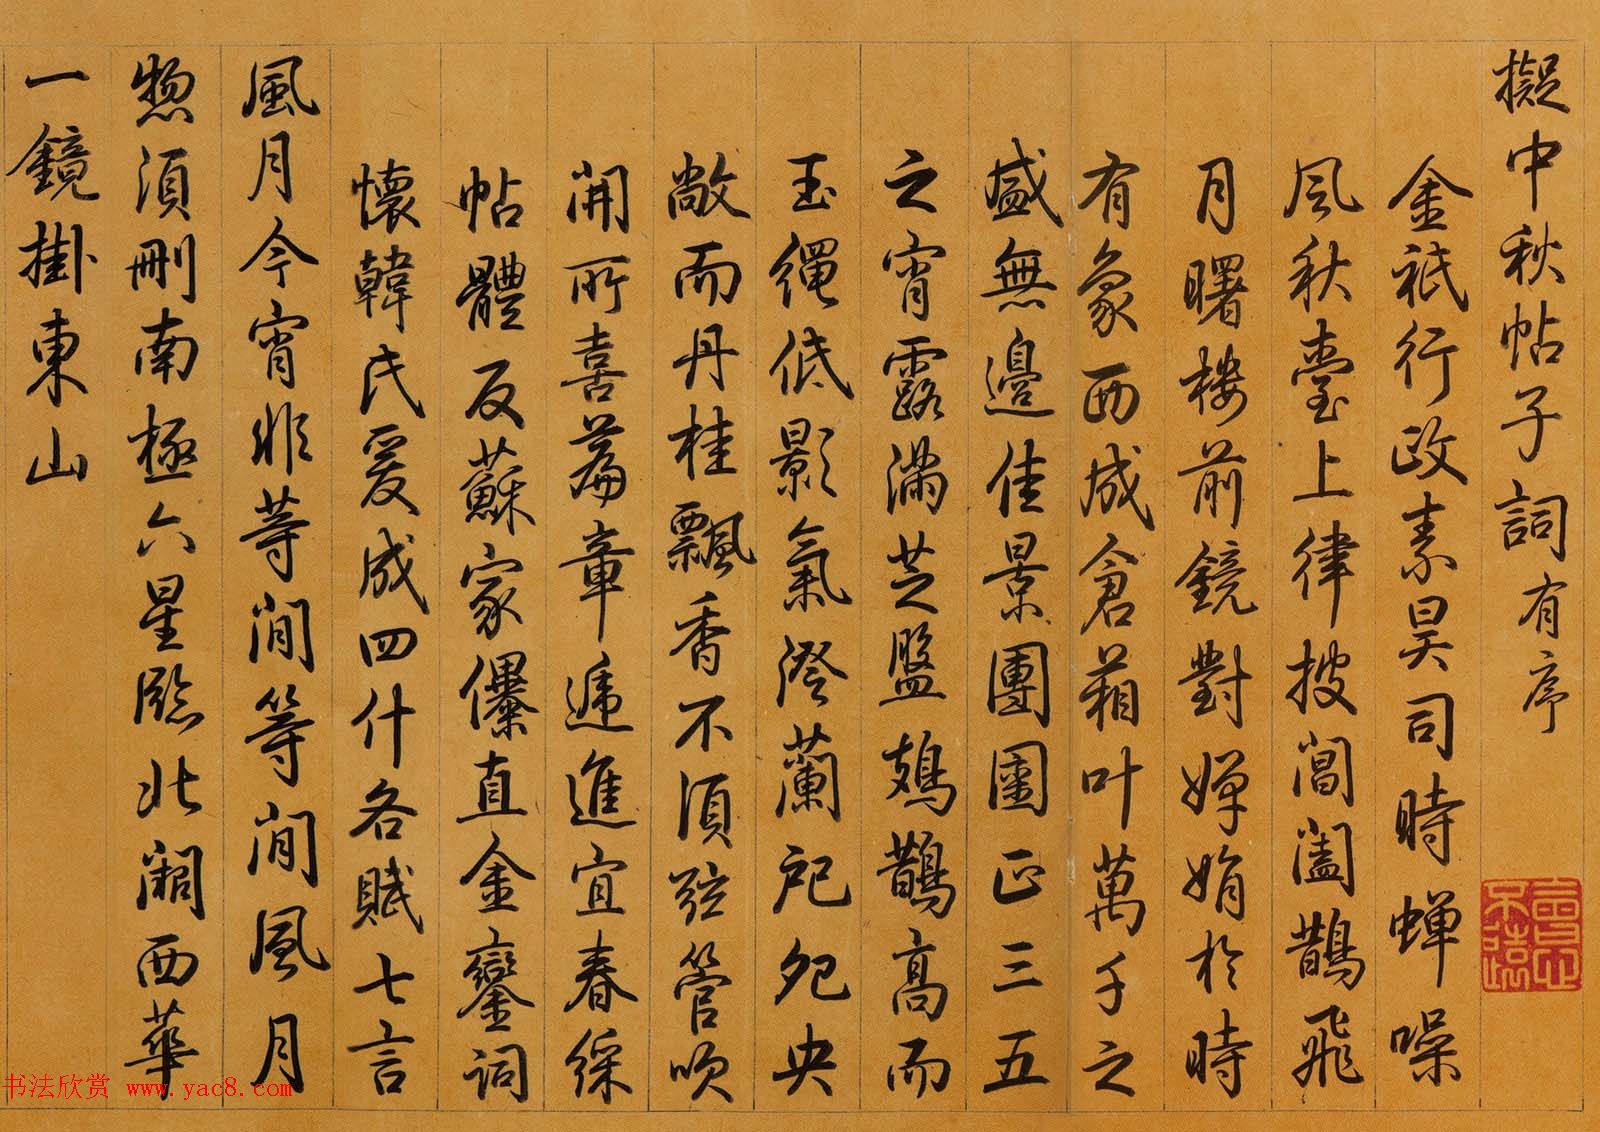 擬中秋帖子詞有序
金祇行政素昊司時蟬噪
風秋臺上律披閶闔鵲飛
月曙樓前鏡對嬋娟於時
有象西成倉葙叶萬千之
盛無邊佳景團圞正三五
之宵露滿芝盤鳷鵲高而
玉繩低影氣澄蘭戺夗央
敞而丹桂飄香不須弦管吹
開所喜篇章遞進宜春綵
帖體反蘇家儤直金鑾詞
懷韓氏爰成四什各賦七言
風月今宵非等閒等閒風月
惣須刪南極六星臨北闕西華
一鏡掛東山
书法欣赏 www.yac8.com